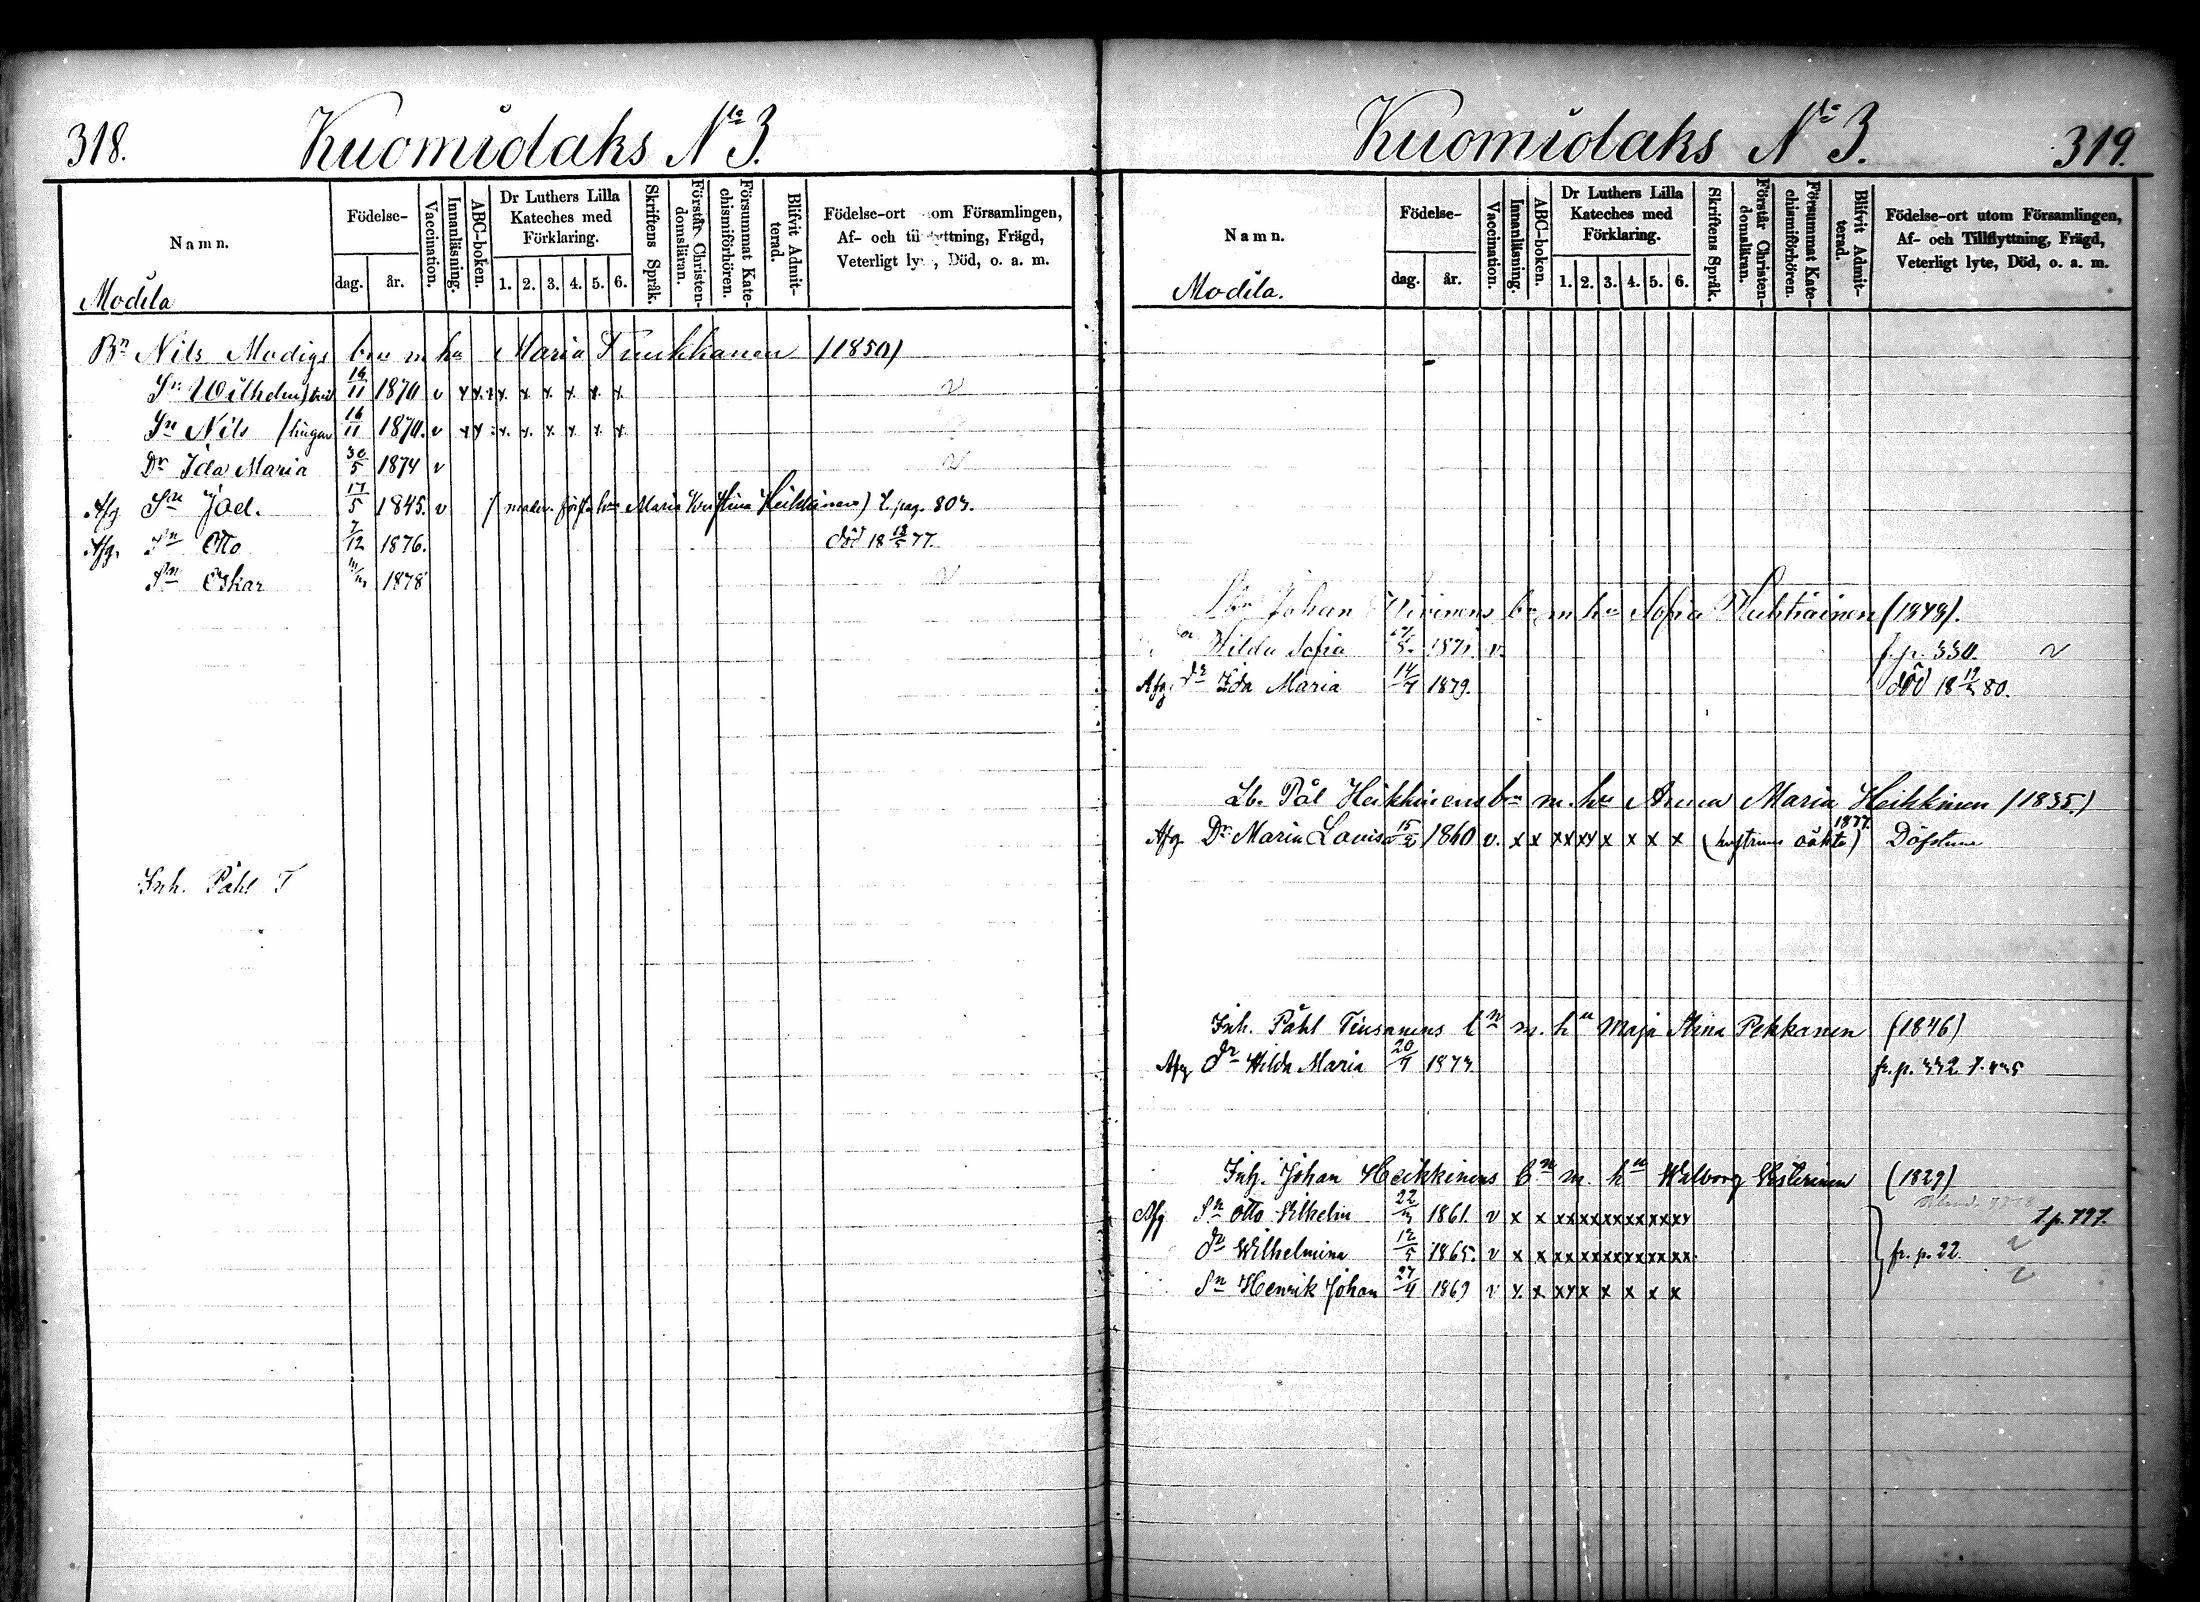 318.
Kuomiolaks No 3.
Namn.
Födelse-
dag.
år.
Vaccination.
Innanläsning.
ABC-boken.
Dr Luthers Lilla Kateches med Förklaring.
1. 2. 3. 4. 5. 6.
Skriftens Språk.
Förstår Christendomsläran.
Försummat Katechismiförhören.
Blifvit Admitterad.
Födelse-ort om Församlingen,
Af- och til yttning, Frägd,
Veterligt ly , Död, o. a. m.
Modila
Bn Nils Modigs bn m hu Maria (1850)
Sn Wilhelm 16/11 1870 v x x x x x x x x v
Sn Nils 16/11 1870. v x x x x x x x x
Dr Ida Maria 30/5 1874 v v
Afg Sn Joel. 17/5 1845. v Maria Kristina Heikkinen) t. pag. 803.
Afg. Sn Otto 7/12 1876. död 18 77.
Sn Oskar 1878 v
Inh. Påhl T
Kuomiolaks No 3.
319.
Namn.
Födelse-
dag.
år.
Vaccination.
Innanläsning.
ABC-boken.
Dr Luthers Lilla Kateches med Förklaring.
1. 2. 3. 4. 5. 6.
Skriftens Språk.
Förstår Christendomsläran.
Försummat Katechismiförhören.
Blifvit Admitterad.
Födelse-ort utom Församlingen,
Af- och Tillflyttning, Frägd,
Veterligt lyte, Död, o. a. m.
Modila.
Johan bn m hu Sofia (1848).
Hilda Sofia v. f. p. 330. v
Afg. dr Ida Maria 14/7 1879. död 18 80.
Lb. Pål Heikkinens bn m. hu Anna Maria Heikkinen (1835.)
Afg Dr Maria Lovisa 15/2 1860 v. x x xx xx x x x x x (hustruns oäkta) 1877. Döfstum
Inh. Påhl Tinsanens bn m. hu Maja Stina Pekkanen (1846)
Afg dr Hilda Maria 20/9 1873. fr. p. 332
Inh. Johan Heikkinens bn m. hu Walborg (1829)
Afg Sn Otto Vilhelm 22/3 1861. v x x xx xx xx xx xx xx t p. 797.
dr Wilhelmina 12/5 1865. v x x xx xx xx xx xx xx. fr. p. 22. v
Sn Henrik Johan 27/9 1869 v x. x xx x x x x x v